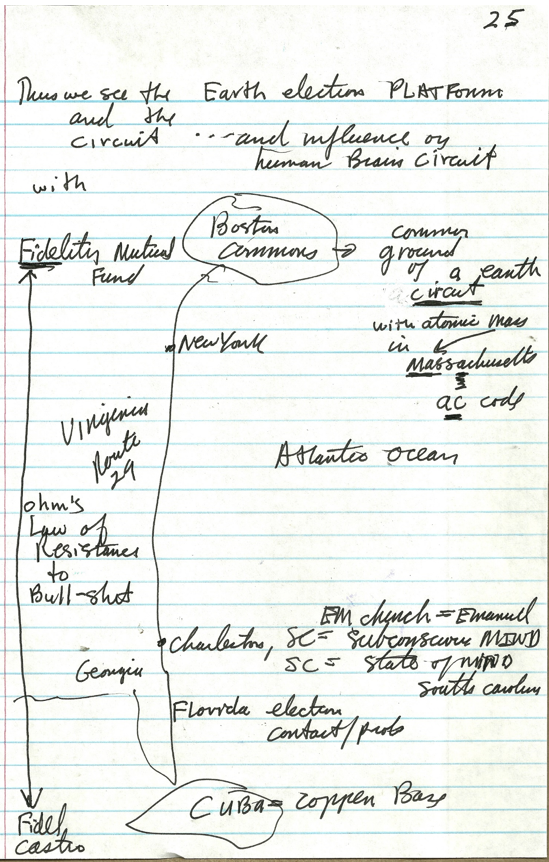 25
Thus we see the Earth election PLATForm
and the
circuit ...and influence on
human Brain Circuit
with
Boston
Commons
Fidelity Mutual
Fund
common
ground
of a earth
circuit
with atomic mass
in
Massachusetts
ac code
New York
Virginia
Route
29
Atlantic Ocean
ohm's
Law of
Resistance
to
Bull-shot
EM church = Emanuel
Charleston, SC = Subconscious MIND
SC = State of MIND
South Carolina
Georgia
Florida election
contact/prob
CUBA = Copper Base
Fidel
Castro